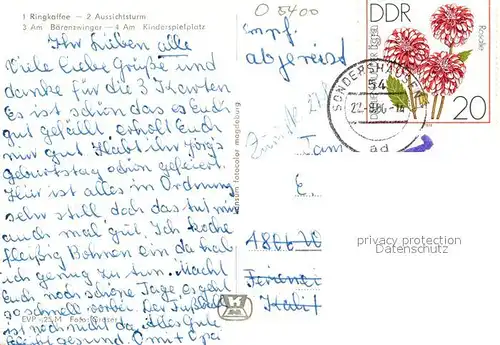 1 Ringkaffee — 2 Aussichtsturm
3 Am Bärenzwinger — 4 Am Kinderspielplatz
Ihr Lieben alle
Viele liebe Grüße und
danke für die 3 Karten
Es ist schön das es Euch
gut gefällt erholt Euch
nur gut Habt ihr Jörgs
Geburtstag schön gefeiert
Hier ist alles in Ordnung
sehr still doch das tut mir
auch mal gut Ich koche
fleißig Bohnen ein da hab
ich genug zu tun. Macht
Euch noch schöne Tage es geht
so schnell vorbei. Der Fußball
ist noch nicht da Alles Gute
bleibt gesund Omi + Opa
EVP -,25 M Foto:
konsum fotocolor magdeburg
O 5400
Empf.
abgereist
Zurück
DDR
Rosalie
20
SONDERSHAUSEN
54
Fam
4806
Ferienei
privacy protection
watermark